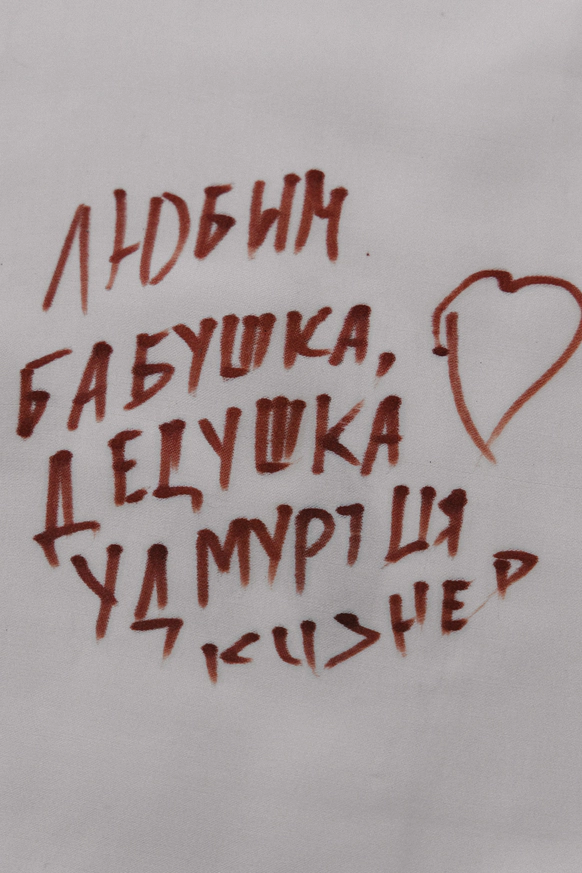 ЛЮБИМ
БАБУШКА,
ДЕДУШКА
УДМУРТИЯ
КИЗНЕР